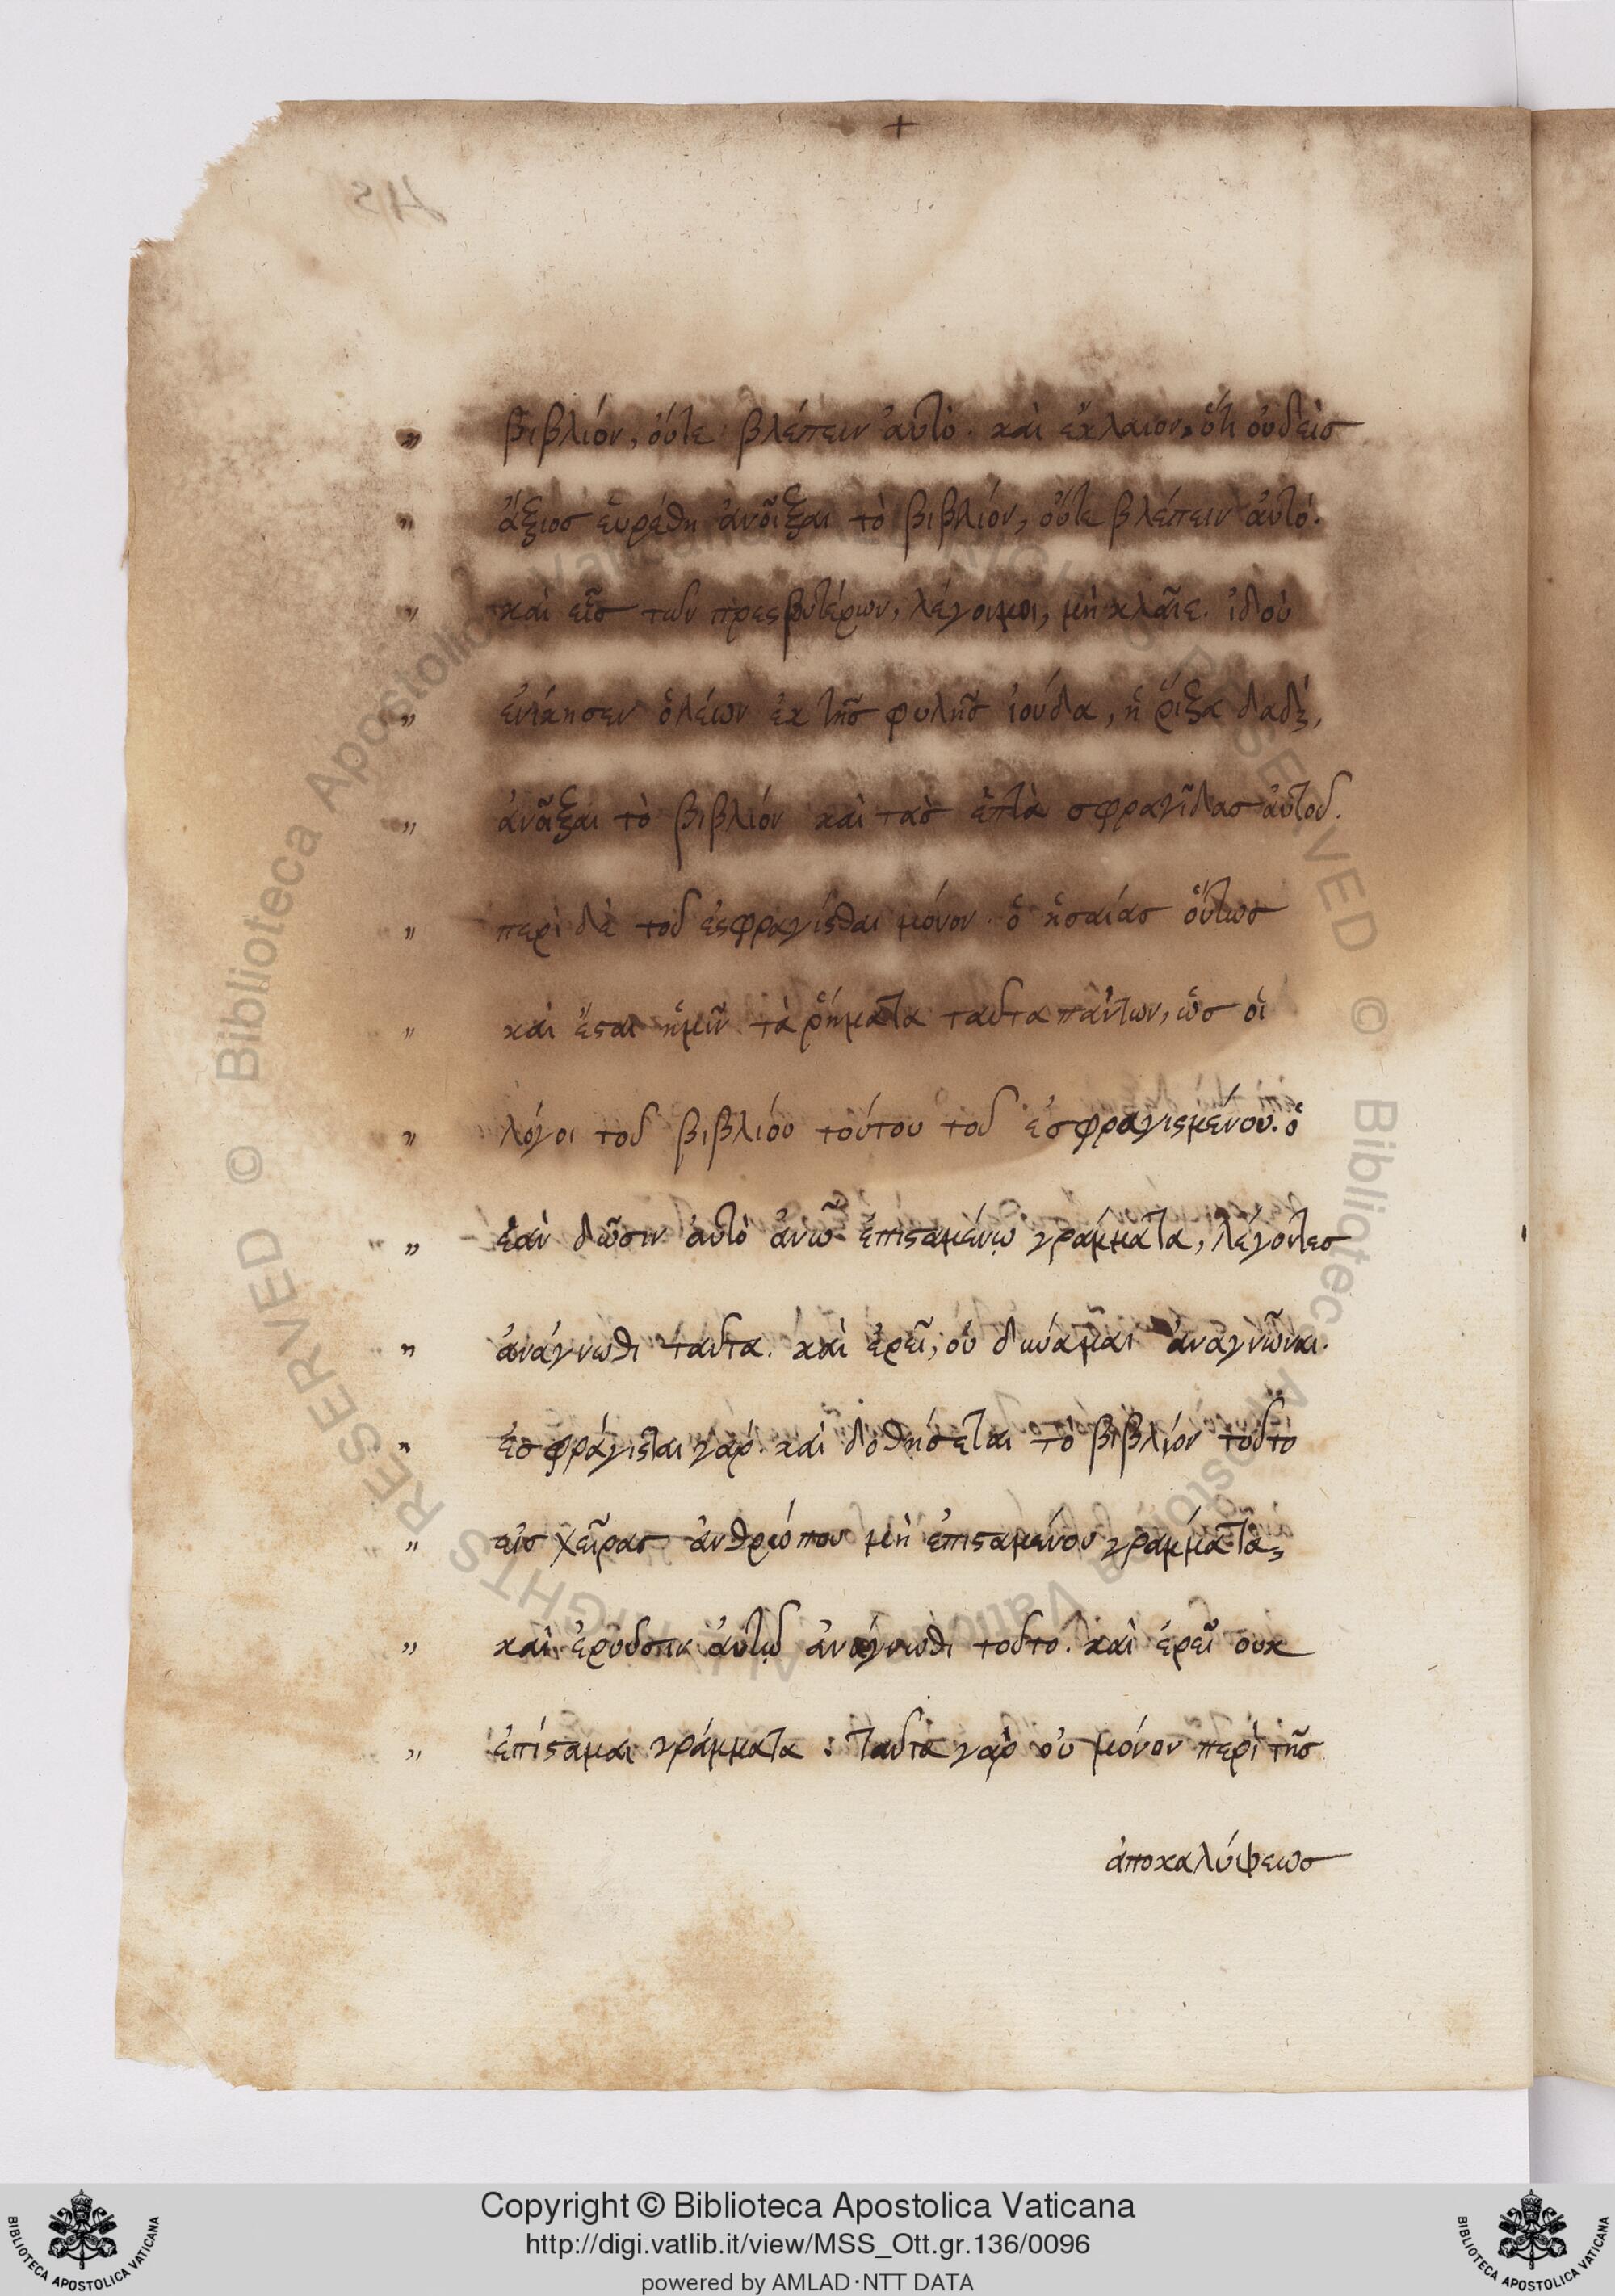 +
" βιβλιόν, ὀύτε βλέπειν ἀυτό. καὶ ἔκλαιον, ὅτι ὀυδεὶσ
" ἄξιοσ ἑυρέθη ἀνοῖξαι τὸ βιβλιόν, ὀύτε βλέπειν ἀυτό.
" καὶ εἷσ των πρεσβυτέρων, λέγοιμοι, μὴ κλαῖε. ἰδοὺ
" ἐνίκησεν ὁλέων ἐκ τῆσ φυλῆσ ἰούδα, ἡ ῥίξα δαδ,
" ἀνοῖξαι τὸ βιβλιόν καὶ τὰσ ἑπτὰ σφραγῖδασ ἀυτοῦ.
" περὶ δὲ τοῦ ἐσφραγίσθαι μόνον. ὁ ἡσαίασ ὅυτωσ
" καὶ ἔσται ἡμῖν τὰ ῥήματα ταῦτα πάντων, ὡσ οἱ
" λόγοι τοῦ βιβλιόυ τόυτου τοῦ ἐσφραγισμένου. ὃ
" ἐὰν δῶσιν ἀυτὸ ἀνῶ ἐπισταμένῳ γράμματα, λέγοντεσ
" ἀνάγνωθι ταῦτα. καὶ ἐρεῖ, ὀυ δυνάμαι ἀναγνῶναι.
" ἐσφράγισται γάρ. καὶ δοθήσεται τὸ βιβλιόν τοῦτο
" εἰσ χεῖρασ ἀνθρώπου μὴ ἐπισταμένου γράμματα,
" καὶ ἐροῦσιν ἀυτῷ ἀνάγνωθι τοῦτο. καὶ ἐρεῖ ουκ
" ἐπίσταμαι γράμματα : ταῦτα γὰρ ὀυ μόνον περὶ τῆσ
ἀποκαλύψεωσ
Copyright © Biblioteca Apostolica Vaticana
http://digi.vatlib.it/view/MSS_Ott.gr.136/0096
powered by AMLAD·NTT DATA
© Biblioteca Apostolica Vaticana ALL RIGHTS RESERVED
BIBLIOTECA APOSTOLICA VATICANA
BIBLIOTECA APOSTOLICA VATICANA